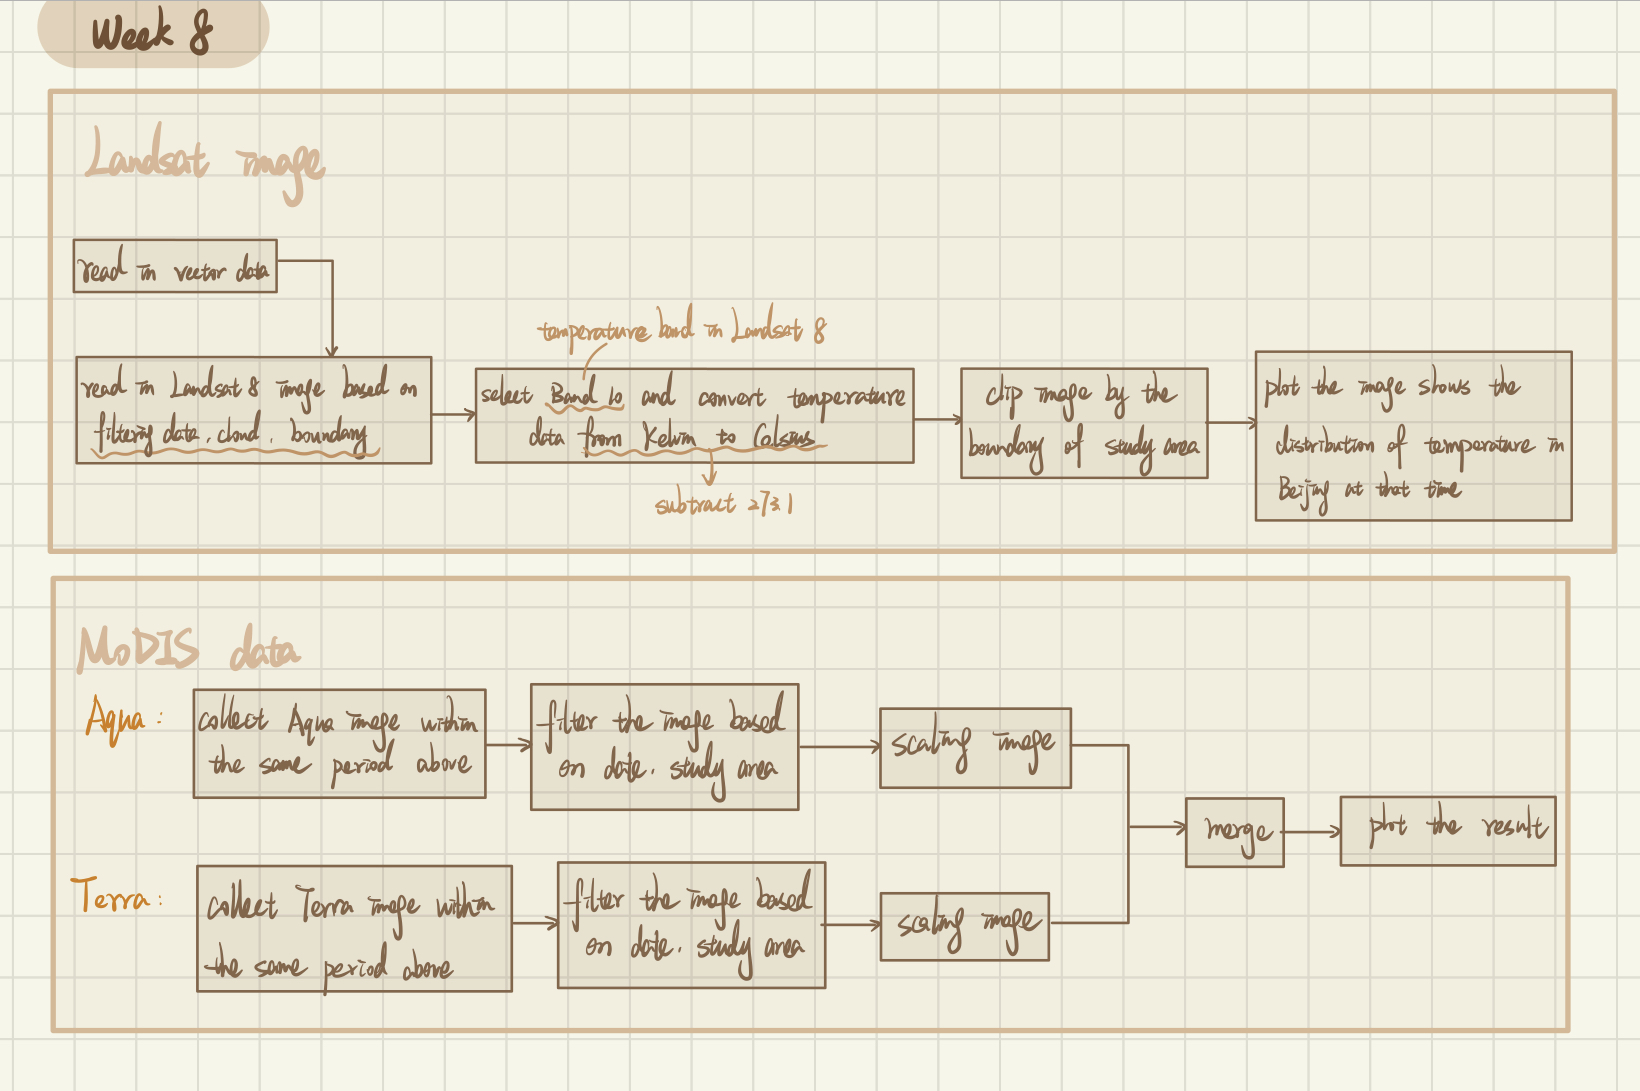 Week 8
Landsat image
read in vector data
temperature band in Landsat 8
read in Landsat 8 image based on
filtering date, cloud, boundary
select Band 10 and convert temperature
data from Kelvin to Calsius
subtract 273.1
clip image by the
boundary of study area
plot the image shows the
distribution of temperature in
Beijing at that time
MODIS data
Aqua:
collect Aqua image within
the same period above
filter the image based
on date, study area
scaling image
merge
plot the result
Terra:
collect Terra image within
the same period above
filter the image based
on date, study area
scaling image